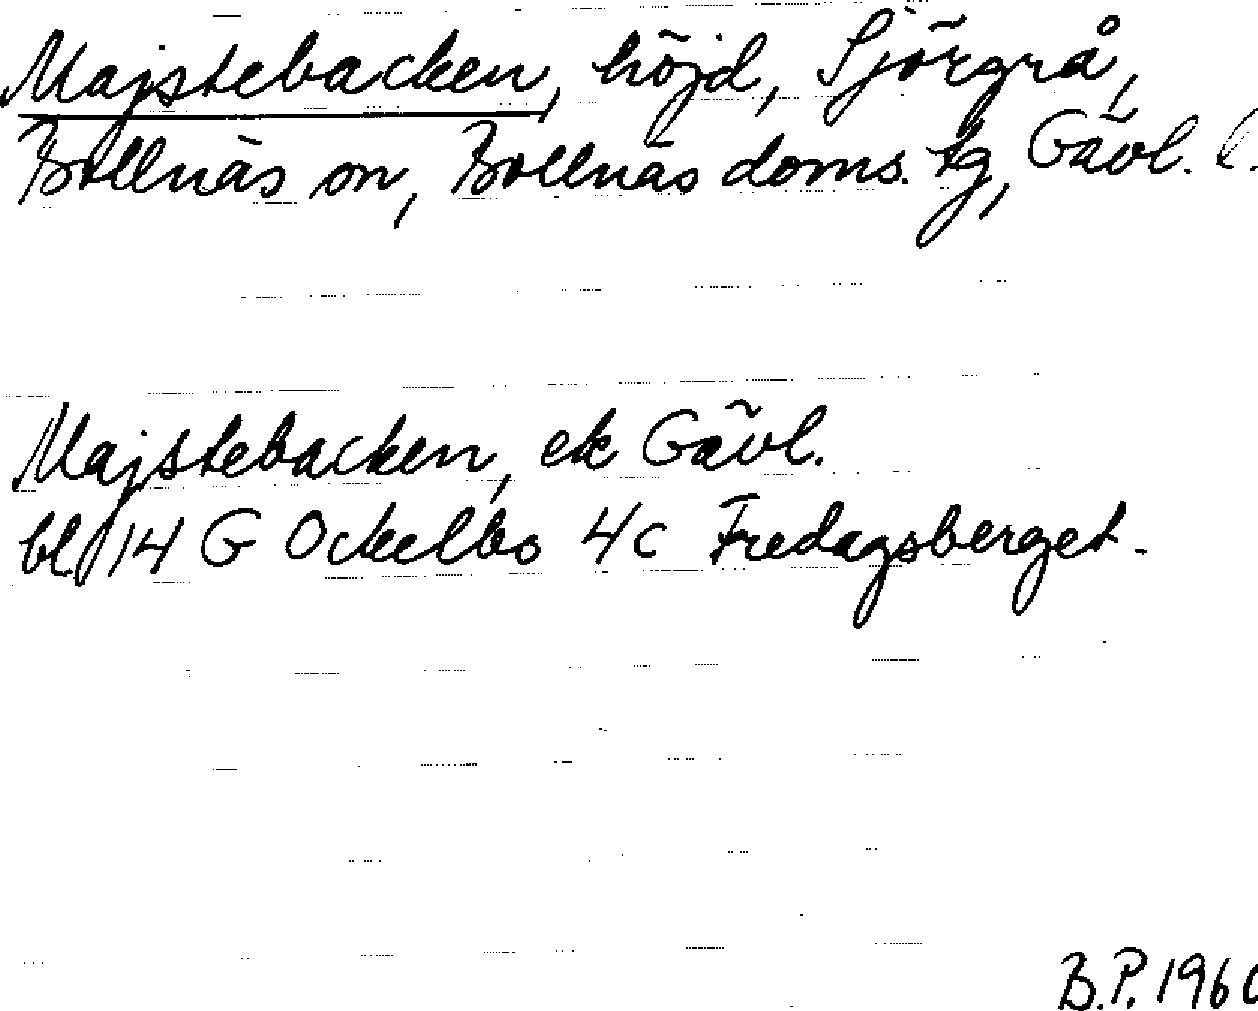 Majstebacken, höjd, Sjörgrå,
Bollnäs sn, Bollnäs doms. tg, Gävl. l.
Majstebacken, ek Gävl.
bl 14 G Ockelbo 4c Fredagsberget.
B.P. 1960